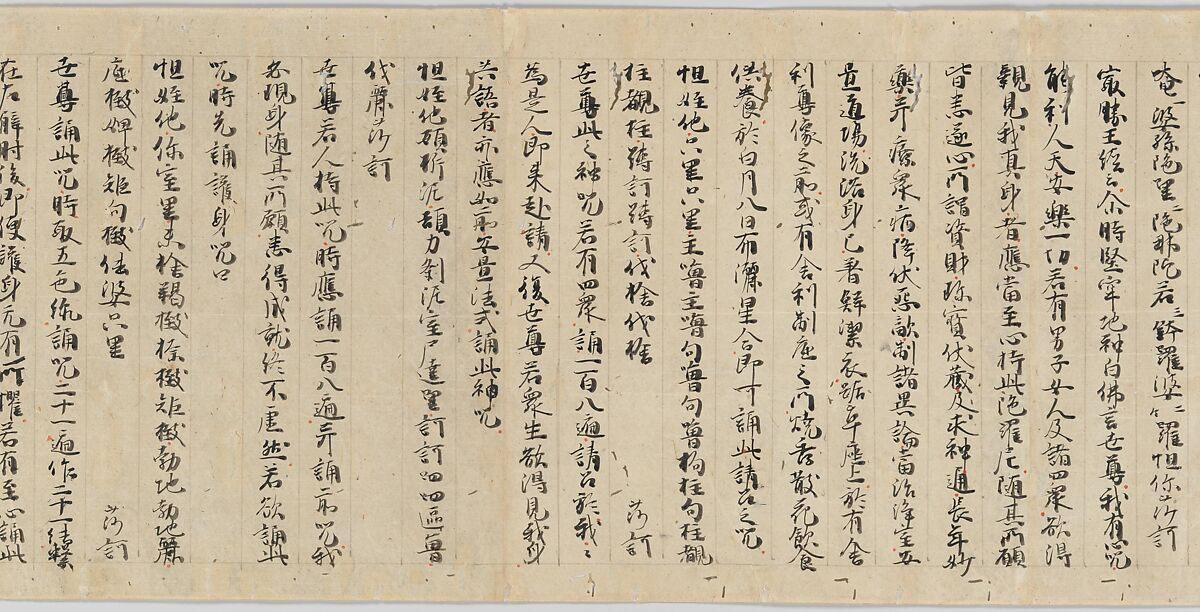 唵一婆孫陁里二陁那陁若三鉢羅婆二合羅怛你莎訶
最勝王經云尒時堅牢地神白佛言世尊我有心呪
能利人天安樂一切若有男子女人及諸四衆欲得
親見我真身者應當至心持此陁羅尼随其所願
皆悉遂心所謂資財珎寶伏藏及求神通長年妙
藥并療衆病降伏惡敵制諸異論當治浄室安
置道場洗浴身已著鮮潔衣踞草座上於有舍
利尊像之前或有舍利制底之所燒香散花飲食
供養於白月八日布灑星合即可誦此請召之呪
怛姪他只里只里主嚕主嚕句嚕句嚕拘柱句柱覩
柱覩柱縛訶縛訶伐捨伐捨 莎訶
世尊此之神呪若有四衆誦一百八遍請召於我我
為是人即来赴請又復世尊若衆生欲得見我身
共語者亦應如前安置法式誦此神呪
怛姪他頞折泥頡力剎泥室尸達里訶訶四四區嚕
伐麗莎訶
世尊若人持此呪時應誦一百八遍并誦前呪我
必現身随其所願悉得成就終不虚然若欲誦此
呪時先誦護身呪曰
怛姪他你室里末捨羯撿捺撿矩撿勃地勃地麗
底撿婢撿矩句撿佉婆只里 莎訶
世尊誦此呪時取五色線誦呪二十一遍作二十一結繫
在左臂肘後即便護身无有所懼若有至心誦此